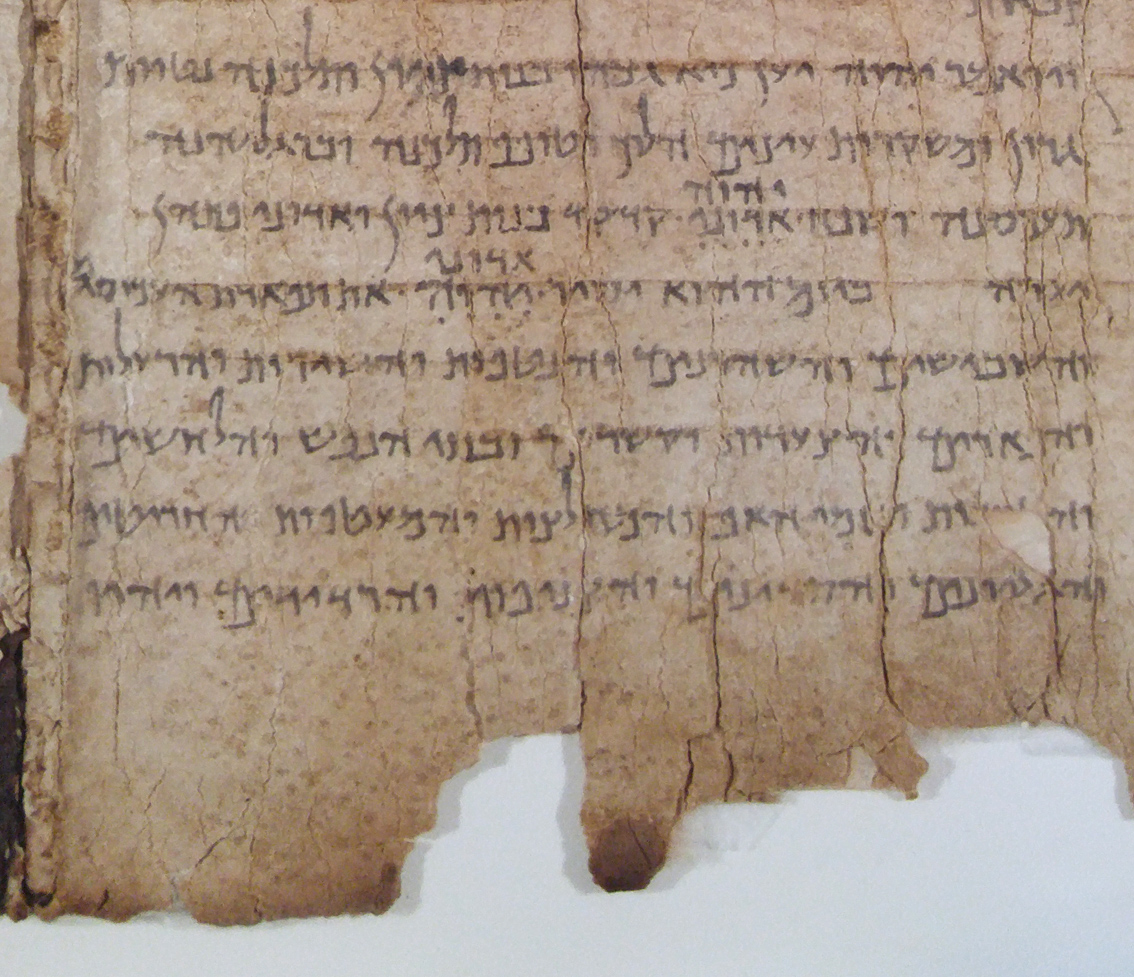 צבאות
ויואמר יהוה יען כיא גבהו בנות ציון תלכנה נטוות
גרון ומשקרות עינים הלוך וטופף תלכנה וברגליהנה
יהוה
תעכסנה ושפח אדוני קדקד בנות ציון ואדוני פתהן
אדוני
יערה ביום ההוא יסיר יהוה את תפארת העכיסים
והשבישים והשהרונים והנטפות והשירות והרעלות
והפארים והצעדות והקשרים ובתי הנפש והלחשים
והטבעות ונזמי האף והמחלצות והמעטפות והחריטים
והגליונים והסדינים והצניפות והרדידים ויהיו